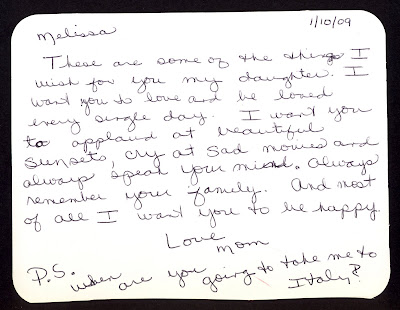 1/10/09
Melissa
These are some of the things I
wish for you my daughter. I
want you to love and be loved
every single day. I want you
to applaud at beautiful
sunsets, cry at sad movies and
always speak your mind. Always
remember your family. And most
of all I want you to be happy.
Love
Mom
P.S. when are you going to take me to
Italy?